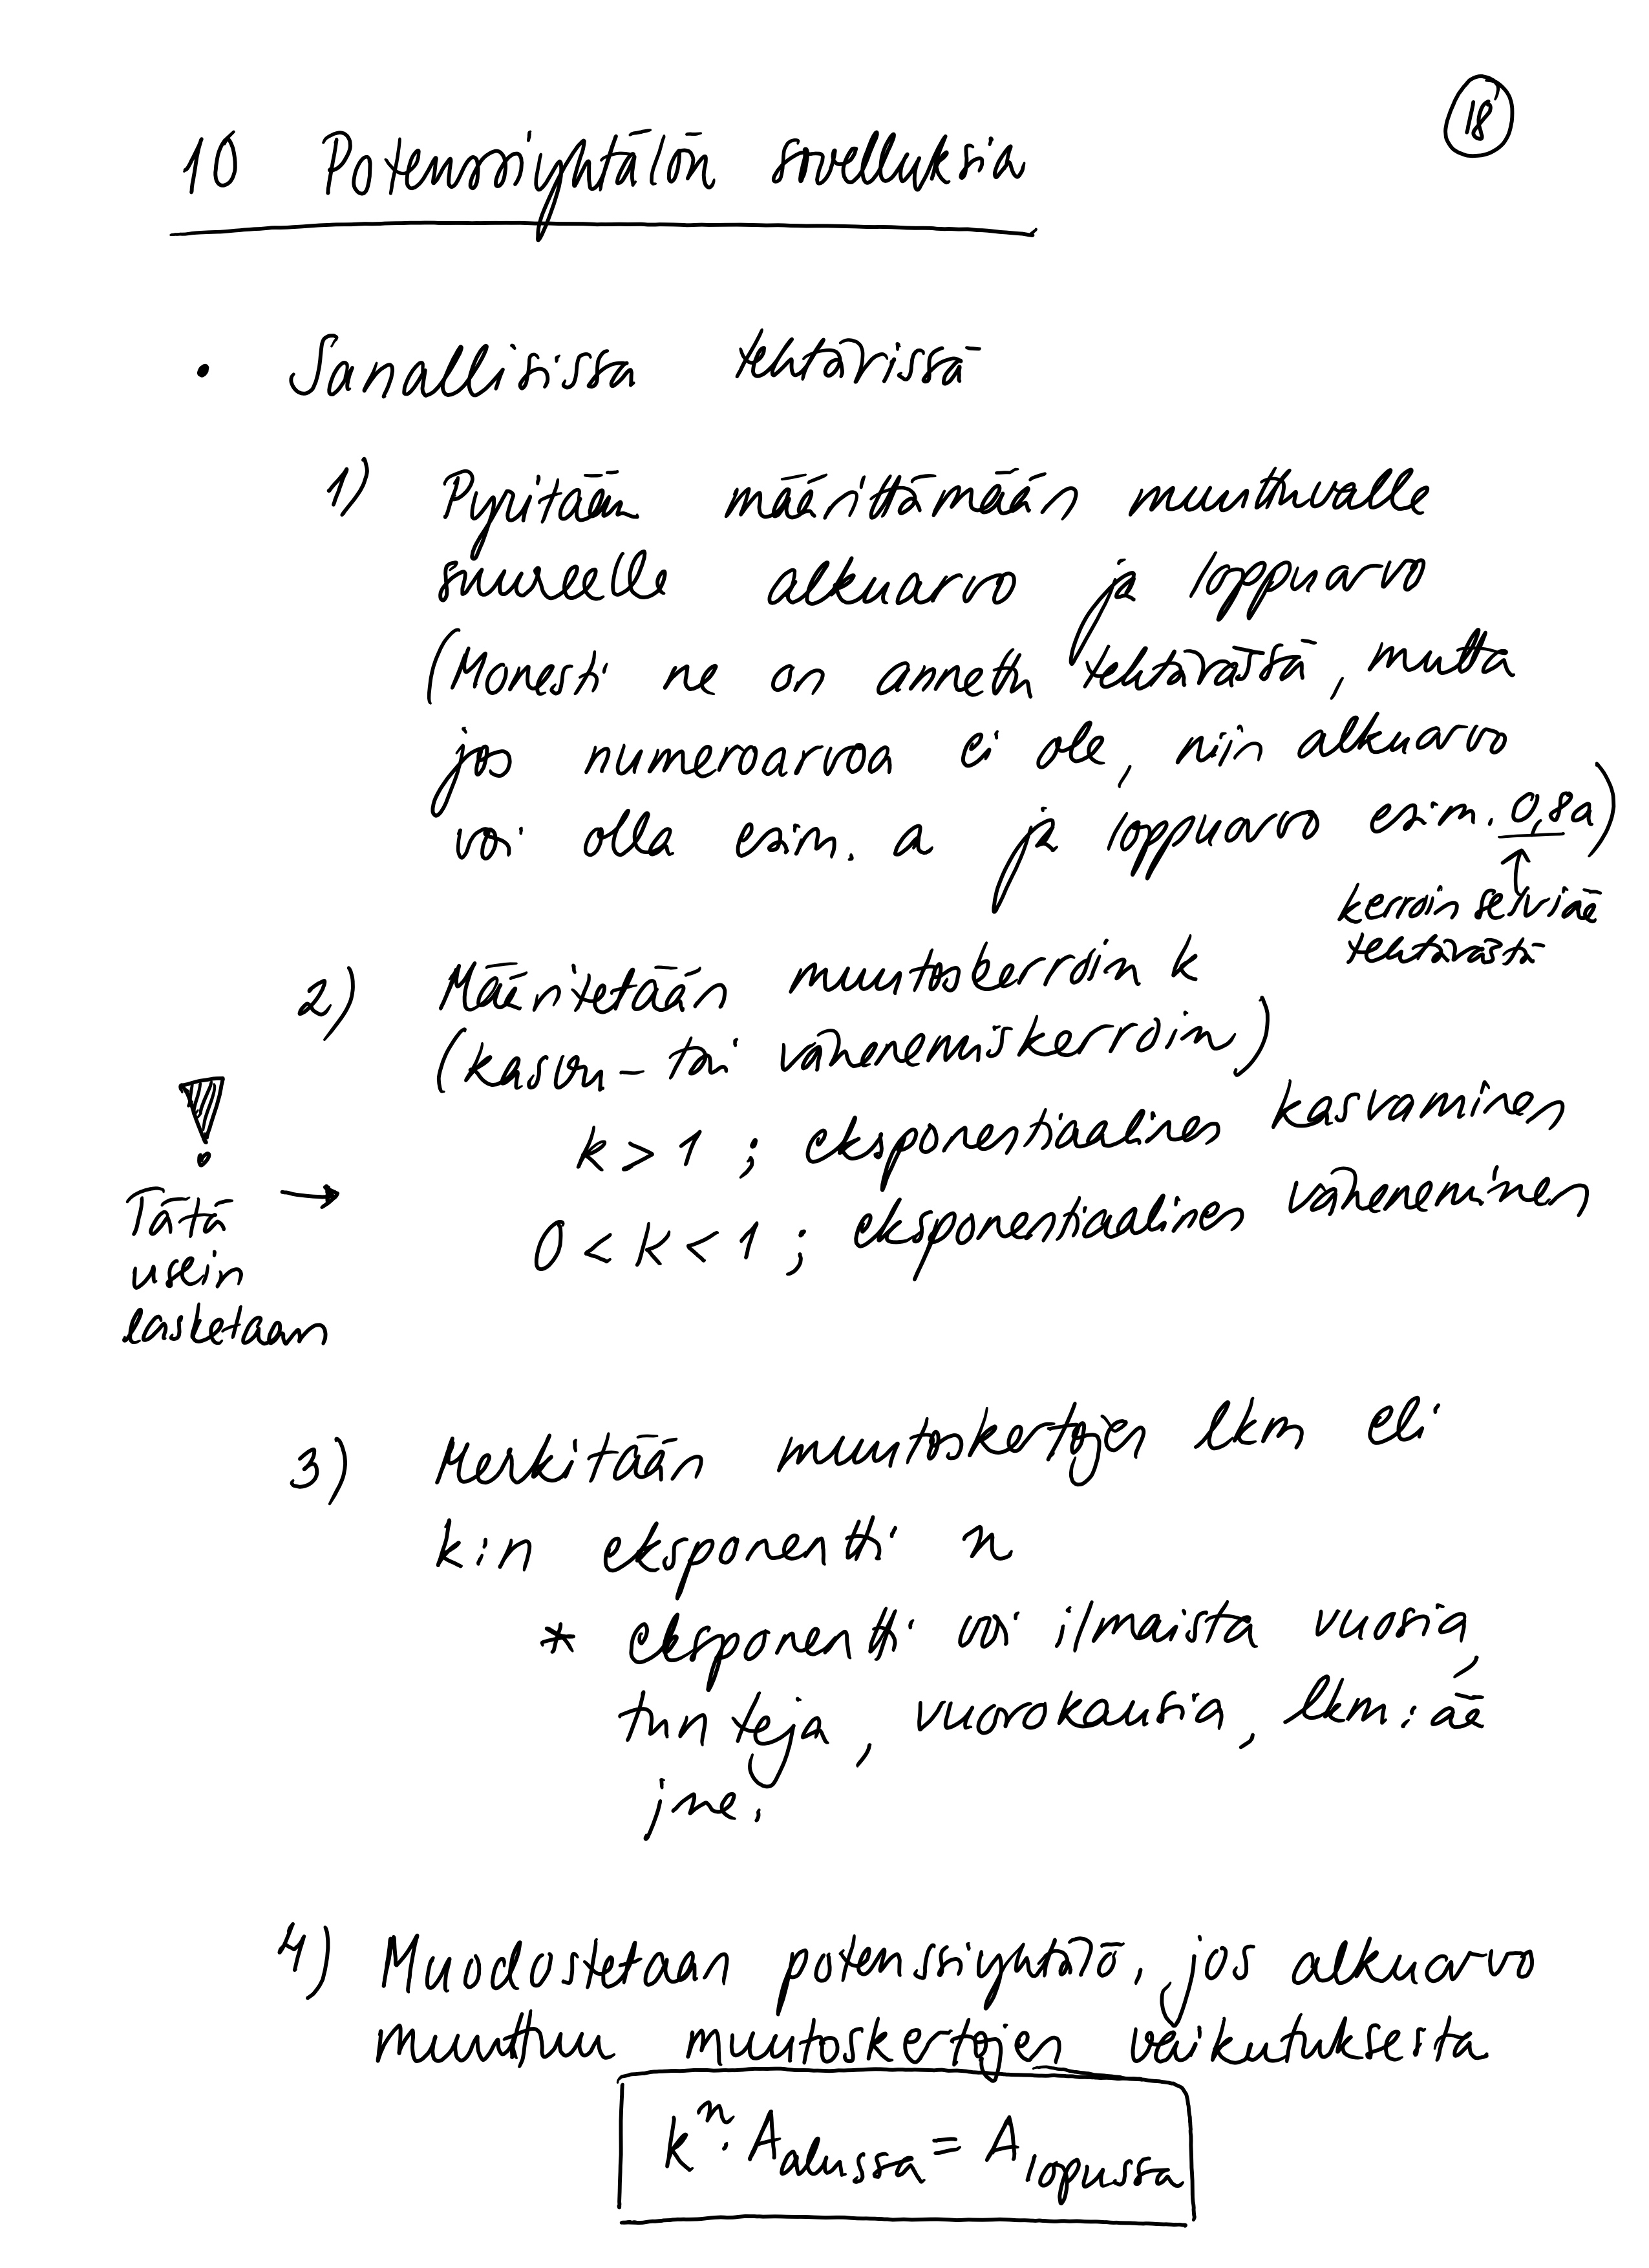 18
10 Potenssiyhtälön sovelluksia
• Sanallisissa tehtävissä
1) Pyritään määrittämään muuttuvalle
suureelle alkuarvo ja loppuarvo
(Monesti ne on annettu tehtävässä, mutta
jos numeroarvoa ei ole, niin alkuarvo
voi olla esim. a ja loppuarvo esim. 0,8a)
kerroin selviää
tehtävästä
2) Määritetään muutoskerroin k
(kasvu- tai vähenemiskerroin)
k > 1 ; eksponentiaalinen kasvaminen
0 < k < 1 ; eksponentiaalinen väheneminen
!
Tätä →
usein
lasketaan
3) Merkitään muutoskertojen lkm eli
k:n eksponentti n
* eksponentti voi ilmaista vuosia,
tunteja, vuorokausia, lkm:ää
jne.
4) Muodostetaan potenssiyhtälö, jos alkuarvo
muuttuu muutoskertojen vaikutuksesta
kⁿ · A alussa = A lopussa